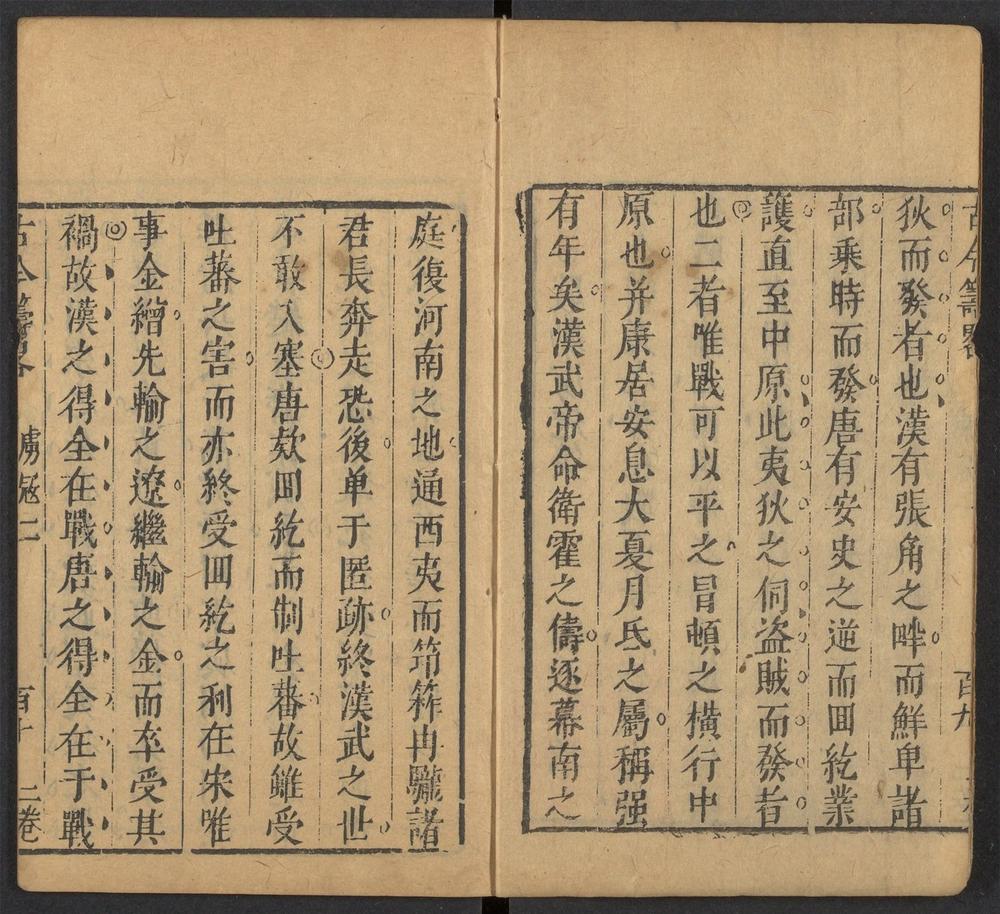 古今籌畧 百九
狄而發者也漢有張角之叫而鮮卑諸
部乘時而發唐有安史之逆而回紇業
護直至中原此夷狄之伺盜賊而發者
也二者唯戰可以平之冒頓之橫行中
原也并康居安息大夏月氐之屬稱强
有年矣漢武帝命衛霍之儔逐幕南之
庭復河南之地通西夷而筇筰冉駹諸
君長奔走恐後单于匿跡終漢武之世
不敢入塞唐欵回紇而制吐蕃故雖受
吐蕃之害而亦終受回紇之利在宋唯
事金繒先輸之遼繼輸之金而卒受其
禍故漢之得全在戰唐之得全在于戰
古今籌畧 虜冦二 百十 二巻